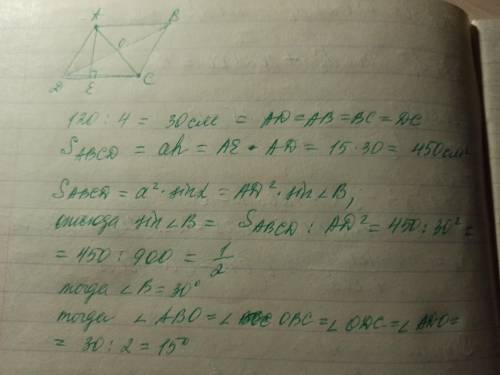 A B
O
D E C
120 : 4 = 30 см = AD = AB = BC = DC
S ABCD = ah = AE · AD = 15 · 30 = 450 см²
S ABCD = a² · sin α = AD² · sin ∠B,
отсюда sin ∠B = S ABCD : AD² = 450 : 30² =
= 450 : 900 = 1/2
тогда ∠B = 30°
тогда ∠ABO = ∠OBC = ∠ODC = ∠ADO =
= 30 : 2 = 15°